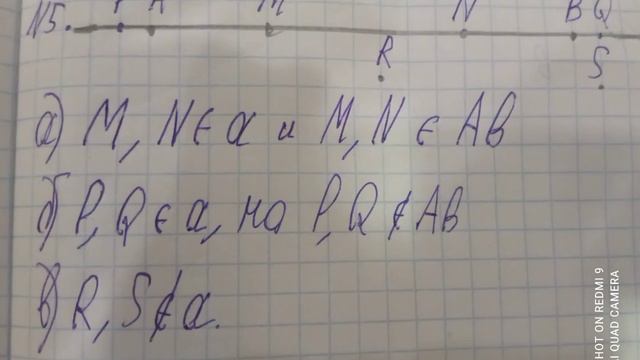 N5. P A M N B Q
R S
а) M, N ∈ a и M, N ∈ AB
б) P, Q ∈ a, но P, Q ∉ AB
в) R, S ∉ a.
SHOT ON REDMI 9
AI QUAD CAMERA